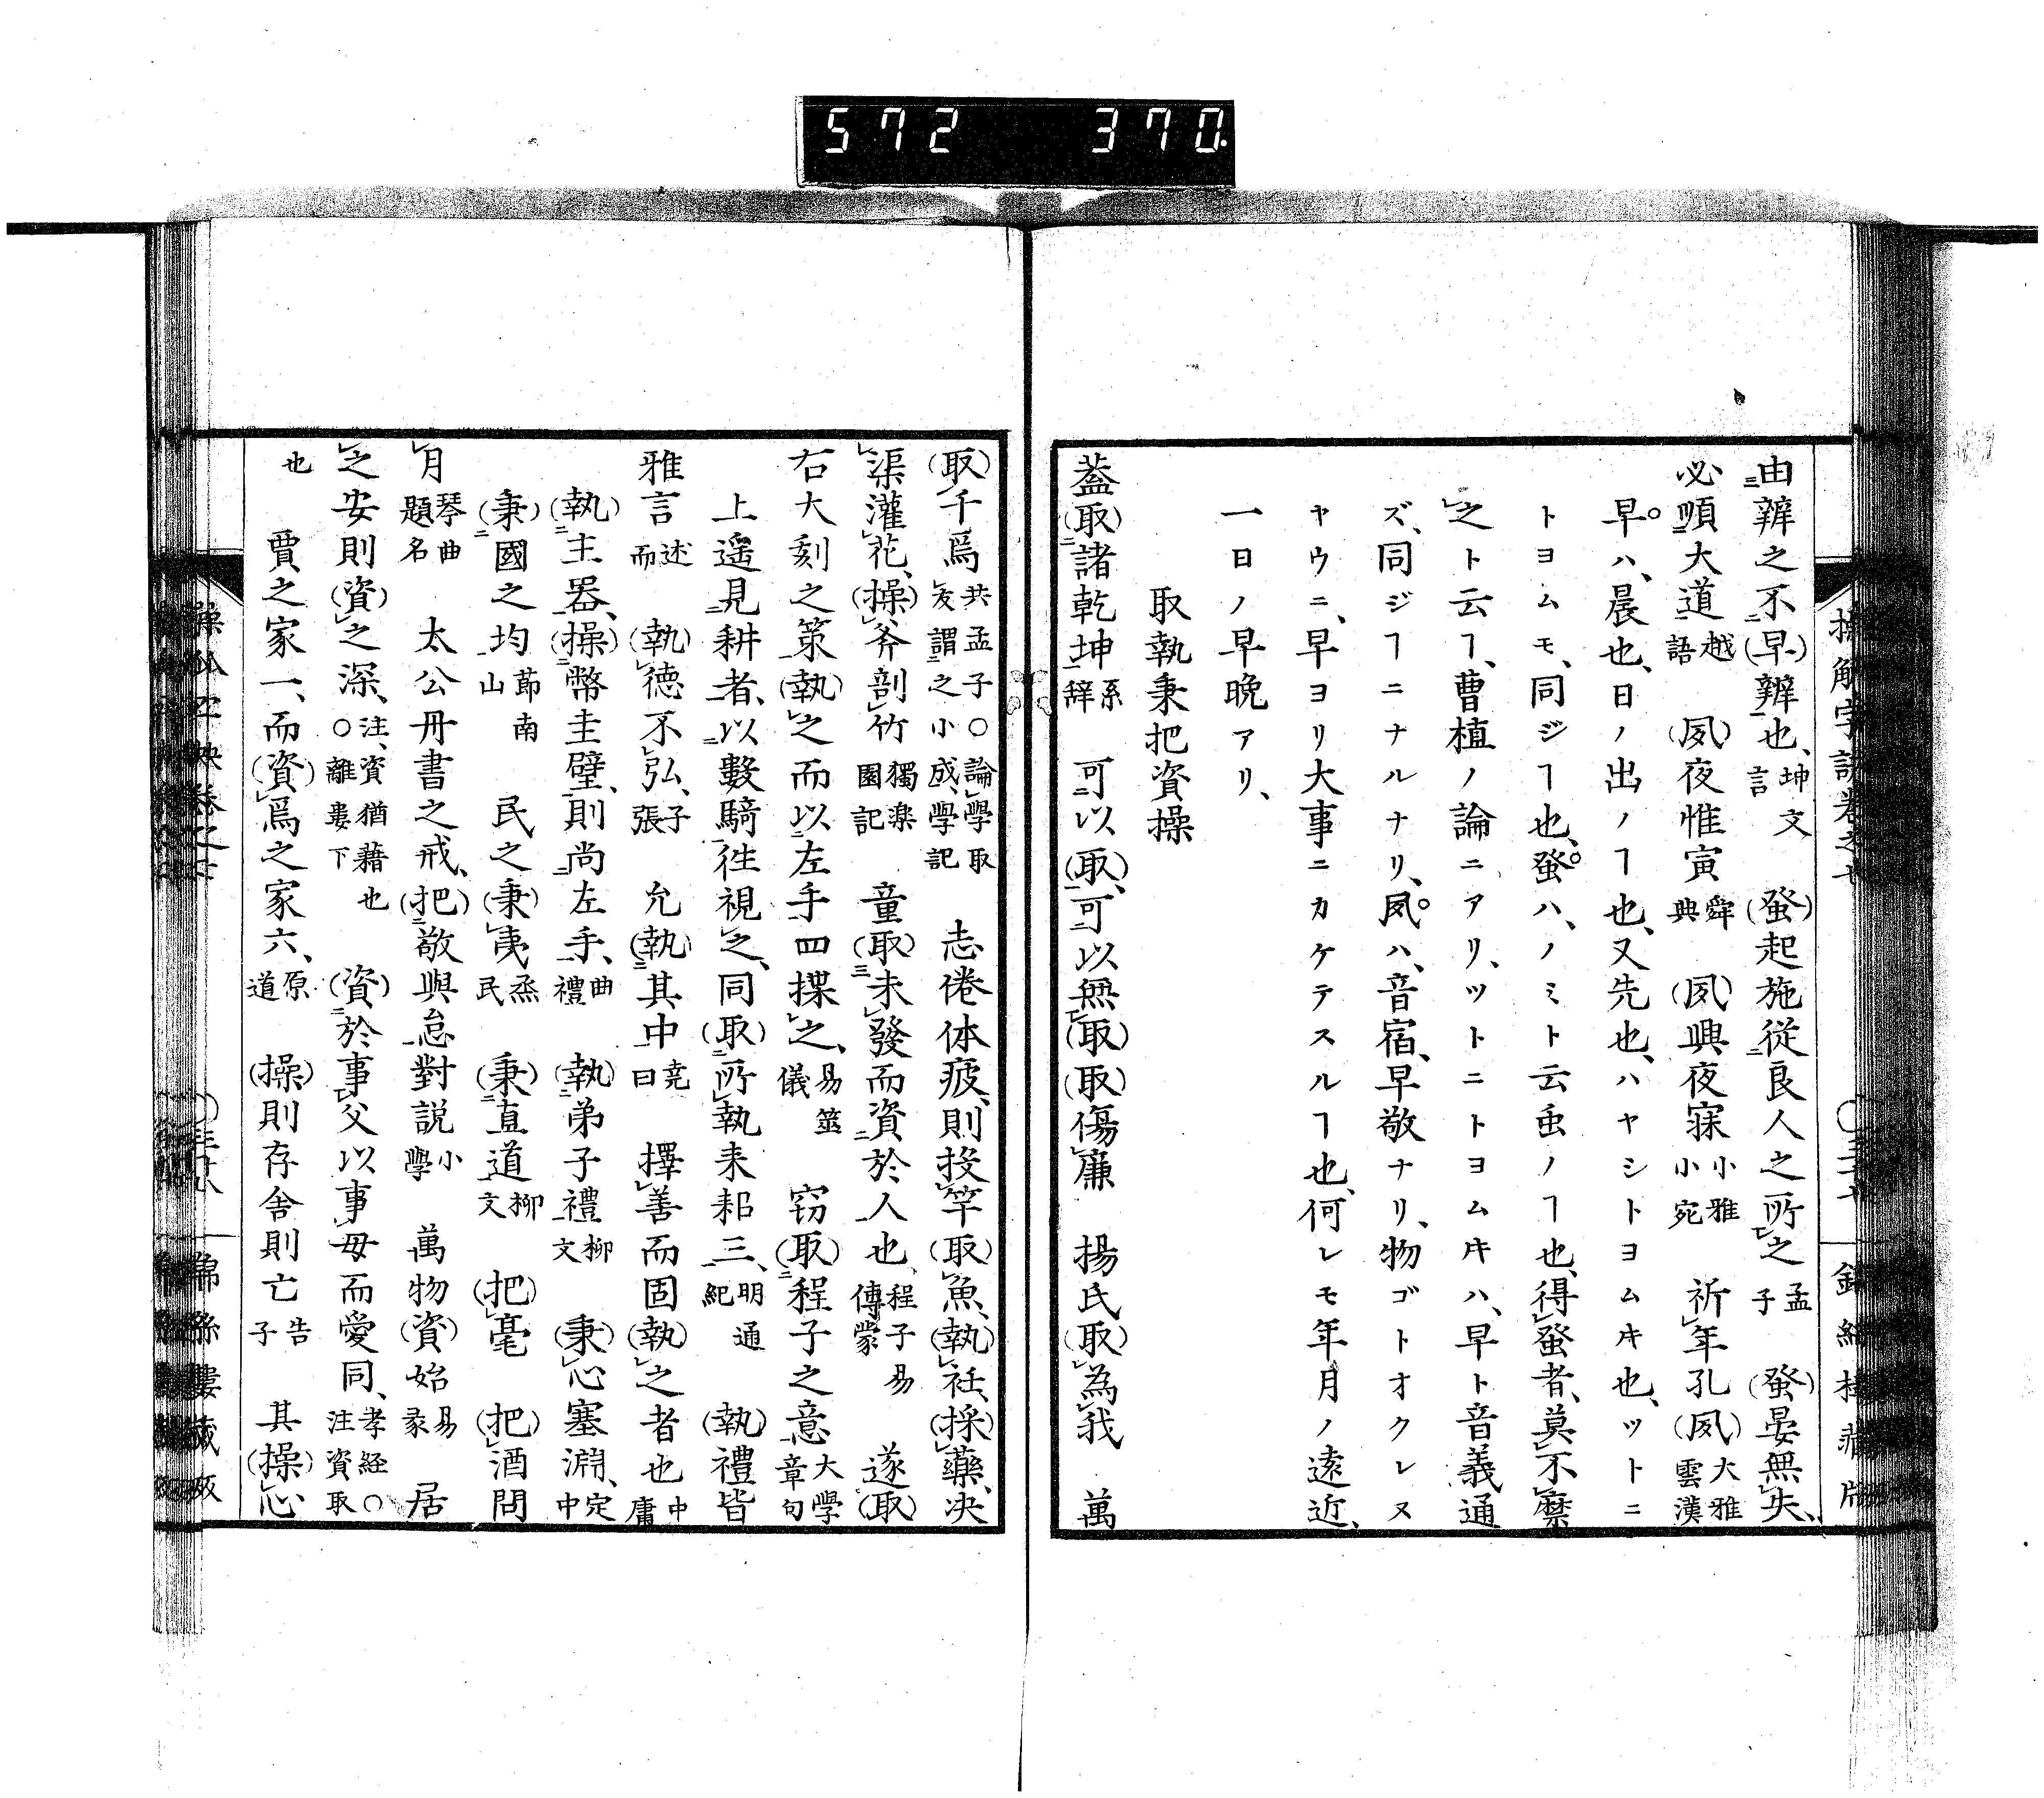 572 370
由辨之不(早)辨也、坤文言 (蚤)起施従良人之所之孟子 (蚤)晏無失、
必順大道越語 (夙)夜惟寅舜典 (夙)興夜寐小雅小宛 祈年孔(夙)大雅雲漢
早ハ、晨也、日ノ出ノヿ也、又先也、ハヤシトヨムキ也、ツトニ
トヨムモ、同ジヿ也、蚤ハ、ノミト云虫ノヿ也、得蚤者、莫不糜
之ト云ヿ、曹植ノ論ニアリ、ツトニトヨムキハ、早ト音義通
ズ、同ジヿニナルナリ、夙ハ、音宿、早敬ナリ、物ゴトオクレヌ
ヤウニ、早ヨリ大事ニカケテスルヿ也、何レモ年月ノ遠近、
一日ノ早晩アリ、
取執秉把資操
蓋(取)諸乾坤系辞 可以(取)、可以無(取)(取)傷廉 揚氏(取)為我 萬
(取)千焉共孟子○論学取友謂之小成、学記 志倦体疲、則投竿(取)魚、(執)衽、(採)薬、决
渠灌花、(操)斧剖竹獨楽園記 童(取)未發而資於人也、程子易傳蒙 遂(取)
右大刻之策(執)之而以左手四揲之、易筮儀 窃(取)程子之意大学章句
上遥見耕者、以數騎徃視之、同(取)所執耒耜三、明通紀 (執)禮皆
雅言述而 (執)徳不弘、子張 允(執)其中堯曰 擇善而固(執)之者也中庸
(執)主器、(操)幣圭璧、則尚左手、曲禮 (執)弟子禮柳文 (秉)心塞淵、定中
(秉)國之均節南山 民之(秉)夷烝民 (秉)直道柳文 (把)毫 (把)酒問
月琴曲題名 太公丹書之戒、(把)敬與怠對説小學 萬物(資)始易彖 居
之安則(資)之深、注、資猶藉也○離婁下 (資)於事父以事母而愛同、孝経○注資取
也 賈之家一、而(資)焉之家六、原道 (操)則存舎則亡告子 其(操)心、